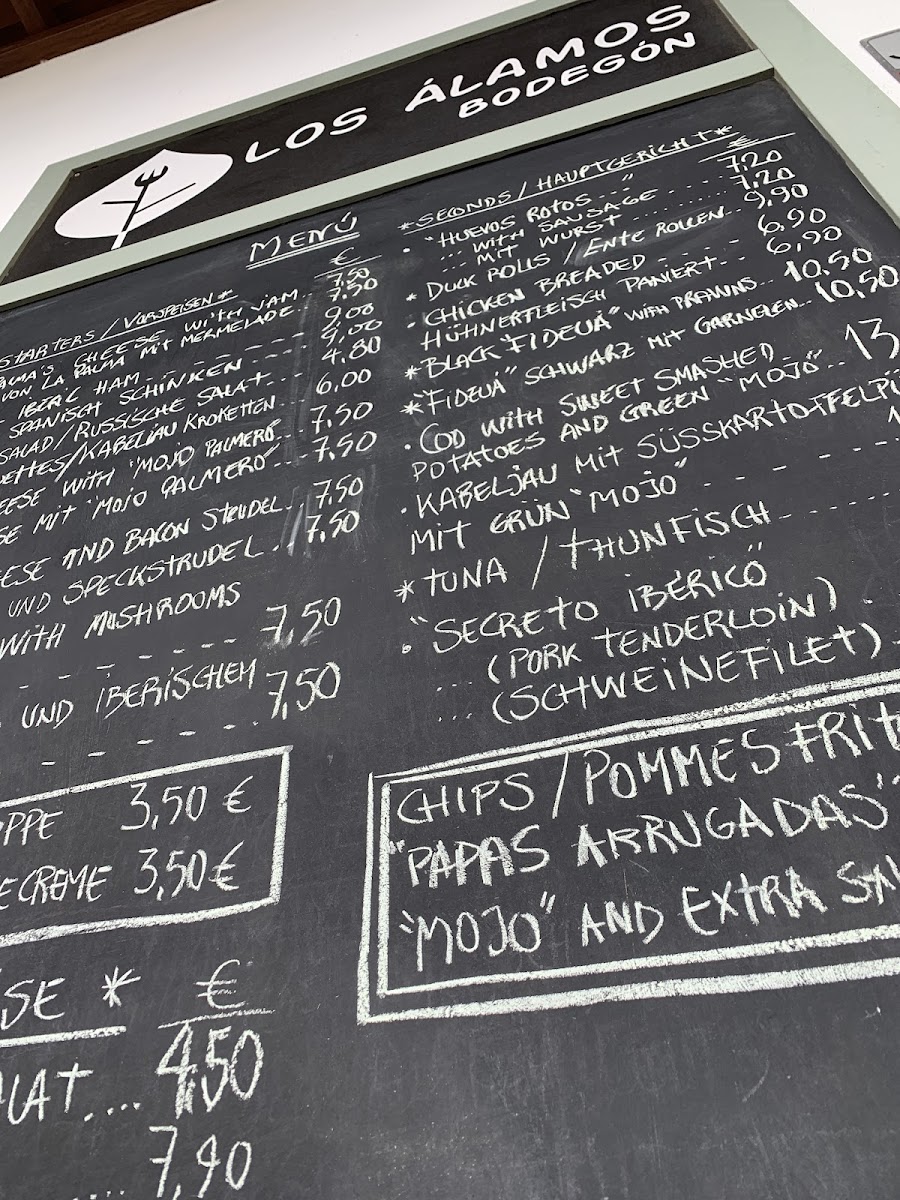 LOS ÁLAMOS
BODEGÓN
MENÚ
€
STARTERS / VORSPEISEN *
CHEESE WITH JAM 7,50
VON LA PALMA MIT MERMELADE.. 7,50
IBERIC HAM - - - - - - 9,00
SPANISCH SCHINKEN ---- 9,00
SALAD/RUSSISCHE SALAT... 4,80
ETTES/KABELJAU KROKETTEN.. 6,00
EESE WITH "MOJO PALMERO".. 7,50
SE MIT "MOJO PALMERO"... 7,50
EESE AND BACON STRUDEL. 7,50
UND SPECKSTRUDEL. 7,50
WITH MUSHROOMS
- - - - - - - - 7,50
UND IBERISCHEM
- - - - - - - 7,50
PPE 3,50 €
ECREME 3,50 €
SE * €
LAT.... 4,50
..... 7,90
*SECONDS/HAUPTGERICHT*
€
• "HUEVOS ROTOS..."
... WITH SAUSAGE ..... 7,20
... MIT WURST ........ 7,20
* DUCK ROLLS / ENTE ROLLEN.. 9,90
• CHICKEN BREADED - - - - - 6,90
HÜHNERFLEISCH PANIERT... 6,90
*BLACK "FIDEUÁ" WITH PRAWNS... 10,50
*"FIDEUÁ" SCHWARZ MIT GARNELEN.. 10,50
• COD WITH SWEET SMASHED
POTATOES AND GREEN "MOJO".. 13
• KABELJAU MIT SÜSSKARTOFFELPÜ
MIT GRÜN "MOJO" - - - - - 1
*TUNA / THUNFISCH
• "SECRETO IBÉRICO"
... (PORK TENDERLOIN) .
... (SCHWEINEFILET) -
CHIPS / POMMES FRIT
"PAPAS ARRUGADAS"
"MOJO" AND EXTRA SA